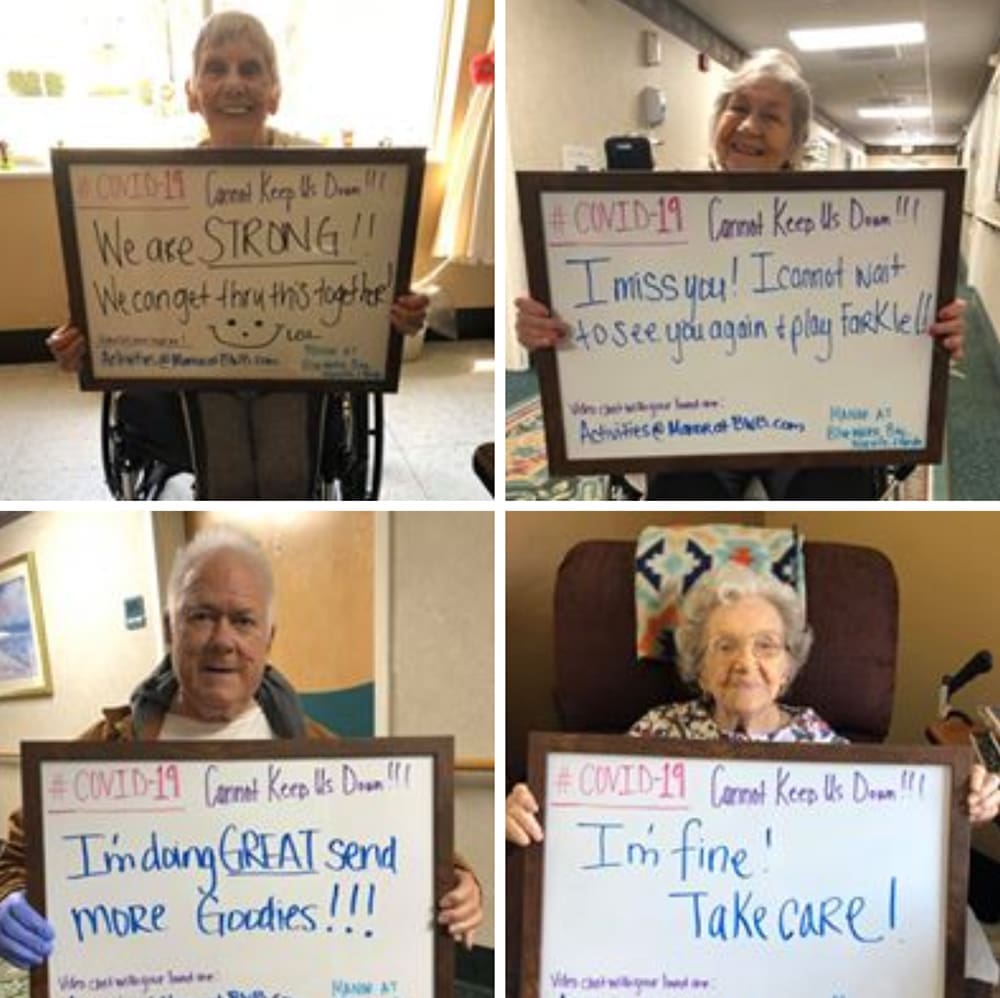 #COVID-19 Cannot Keep Us Down!!!
We are STRONG!!
We can get thru this together!
Activities@ManoratBWB.com
MANOR AT
Blue Water Bay
#COVID-19 Cannot Keep Us Down!!!
I miss you! I cannot wait
to see you again + play FarKle!!
Video chat with your loved one:
Activities@ManoratBWB.com
MANOR AT
Blue Water Bay
#COVID-19 Cannot Keep Us Down!!!
I'm doing GREAT send
more Goodies!!!
Video chat with your loved one:
MANOR AT
#COVID-19 Cannot Keep Us Down!!!
I'm fine!
Take care!
Video chat with your loved one: